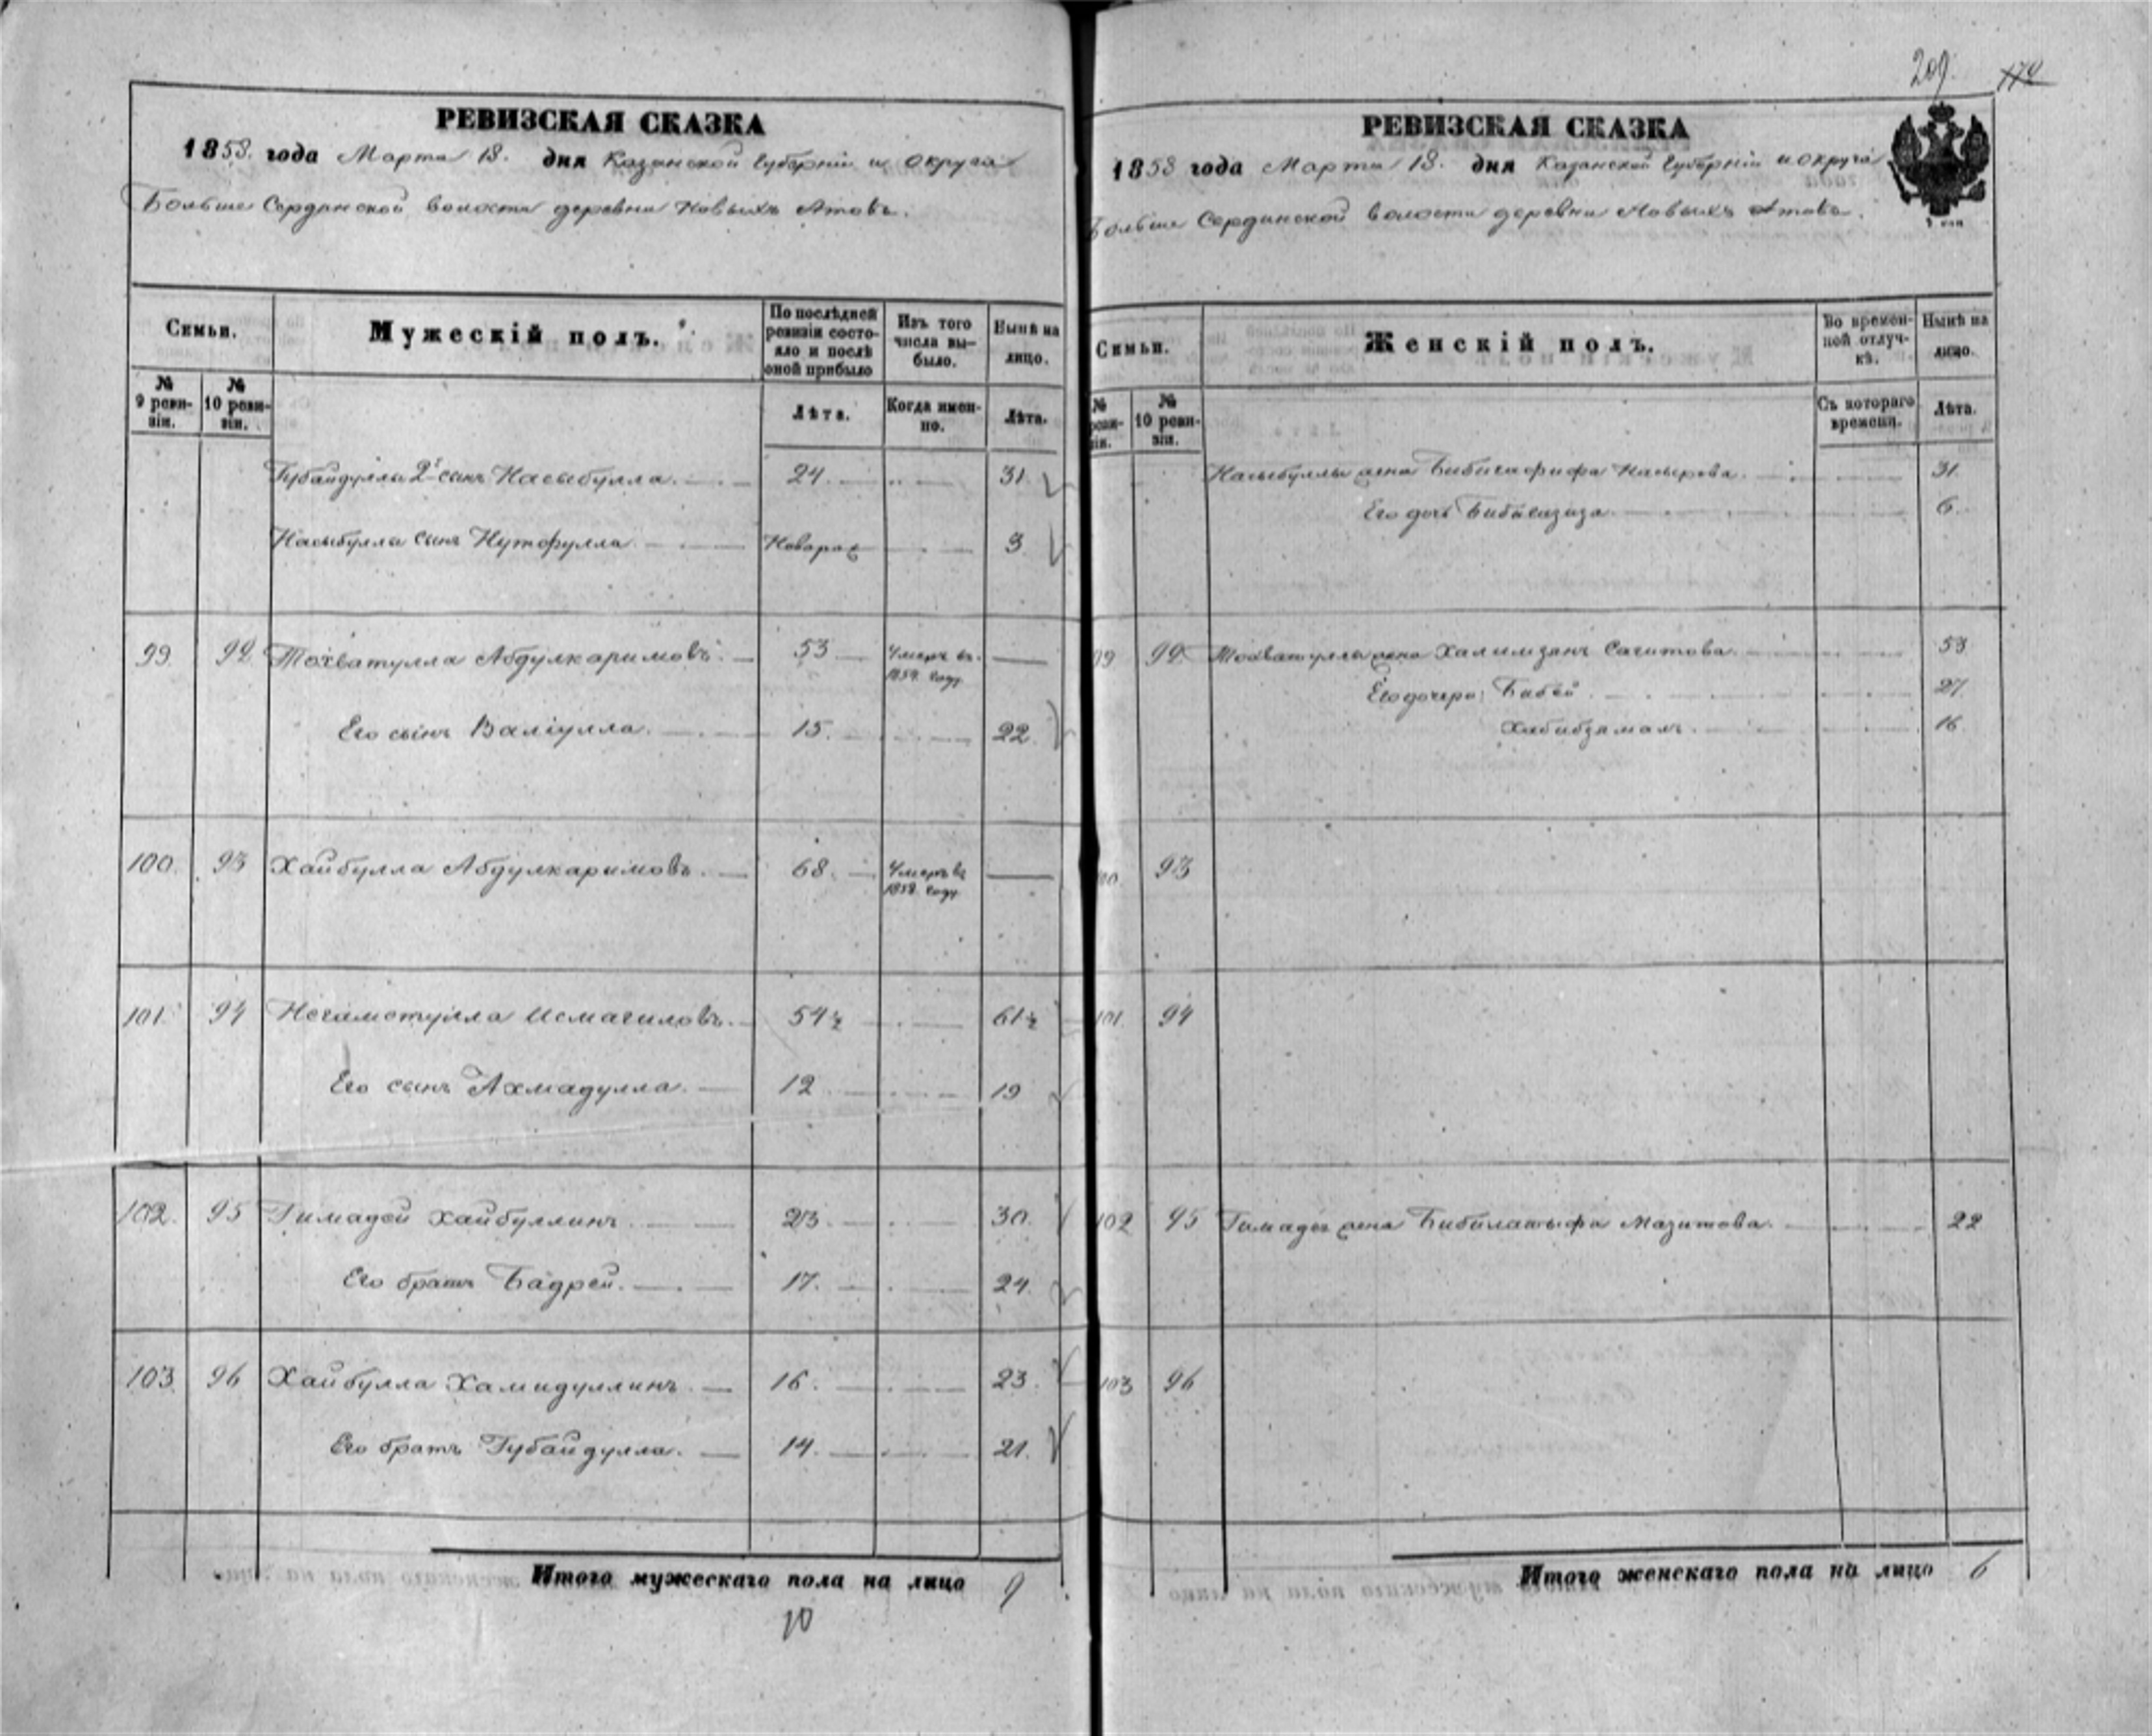 209. 172
РЕВИЗСКАЯ СКАЗКА
1858. года Марта 18. дня Казанской Губерніи и округа
Больше Сердинской волости деревни Новыхъ Атовъ.
Семьи.
Мужескій полъ.
По послѣдней ревизіи состояло и послѣ оной прибыло
Изъ того числа выбыло.
Нынѣ на лицо.
№ 9 ревизіи.
№ 10 ревизіи.
Лѣта.
Когда именно.
Лѣта.
Губайдуллы 2й сынъ Насыбулла. 24. 31.
Насыбуллы сынъ Нутфулла Новорож 3
99. 92 Тохватулла Абдулкаримовъ. 53 Умеръ въ 1854. году
Его сынъ Валіулла. 15. 22.
100. 93 Хайбулла Абдулкаримовъ. 68. Умеръ въ году
101. 94 Негаметулла Исмагиловъ. 54½ 61½
Его сынъ Ахмадулла. 12 19
102. 95 Гимадей Хайбуллинъ. 23. 30.
Его братъ Бадрей. 17. 24.
103. 96 Хайбулла Хамидуллинъ. 16. 23.
Его братъ Губайдулла. 14. 21.
Итого мужескаго пола на лицо 9
10
РЕВИЗСКАЯ СКАЗКА
1858 года Марта 18. дня Казанской Губерніи и округа
Больше Сердинской волости деревни Новыхъ Атовъ.
1 коп
Семьи.
Женскій полъ.
Во временной отлучкѣ.
Нынѣ на лицо.
№ реви-зіи.
№ 10 ревизіи.
Съ котораго времени.
Лѣта.
Насыбуллы жена Бибигафифа Насырова. 31.
Его дочь Бибигазиза. 6.
99 92 Тохватуллы жена Халимзянъ Сагитова. 53
Его дочери: Бибей. 27.
Хабибзямалъ. 16.
93
101. 94
102 95 Гимадея жена Бибилатыфа Мазитова. 22
103 96
Итого женскаго пола на лицо 6